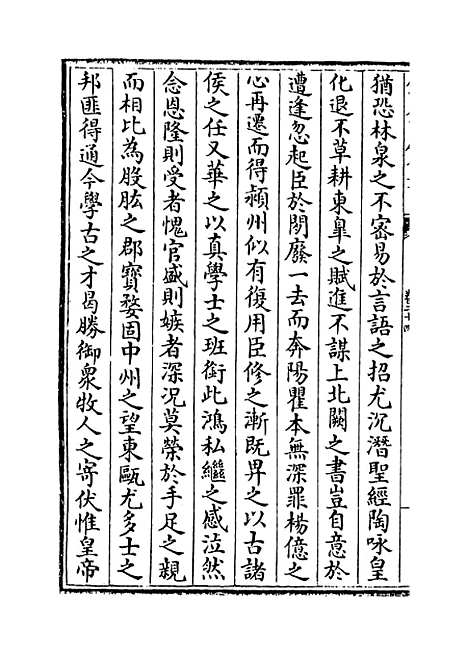 猶恐林泉之不宻易於言語之招尤沉潛聖經陶咏皇
化退不草耕東臯之賦進不謀上北闕之書豈自意於
遭逢忽起臣於閒廢一去而奔陽瞿本無深罪楊億之
心再遷而得潁州似有復用臣修之漸既畀之以古諸
侯之任又華之以真學士之班銜此鴻私繼之感泣然
念恩隆則受者愧官盛則嫉者深況莫榮於手足之親
而相比為股肱之郡寳婺固中州之望東甌尤多士之
邦匪得通今學古之才曷勝御衆牧人之寄伏惟皇帝